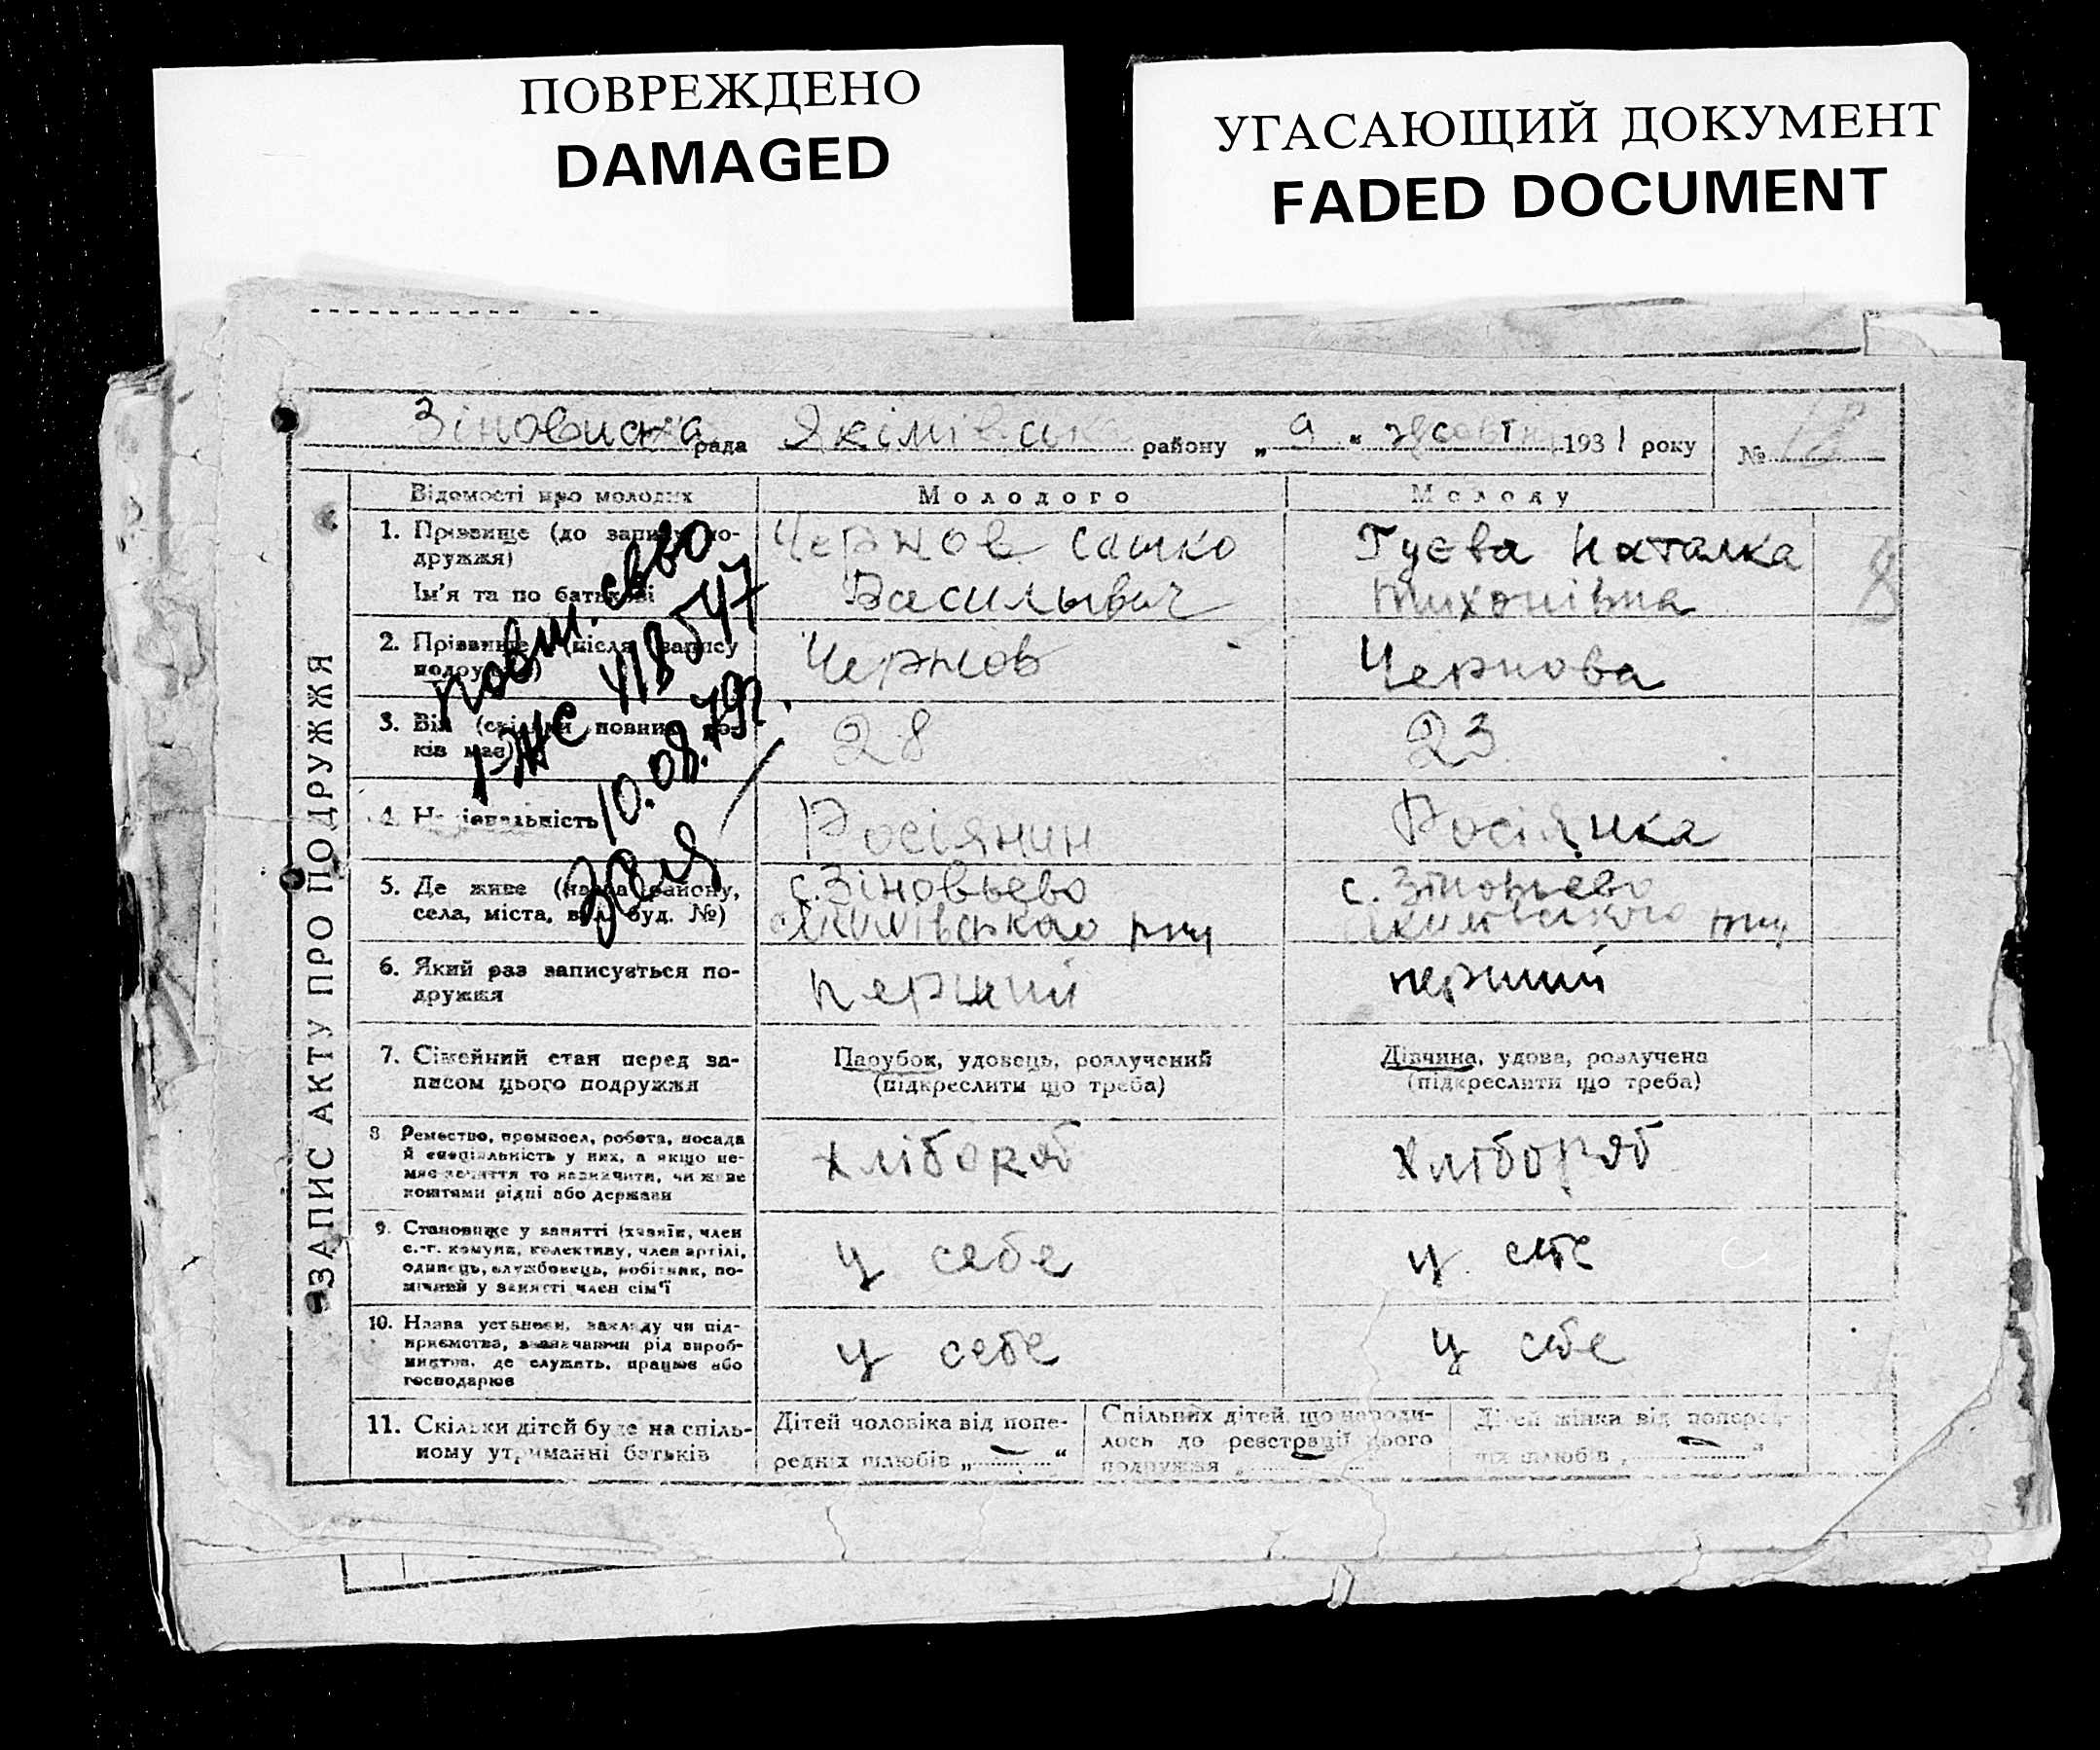 ПОВРЕЖДЕНО
DAMAGED
УГАСАЮЩИЙ ДОКУМЕНТ
FADED DOCUMENT
Зіновиска рада Якімівська району „ 9 “ жовт 1931 року № 18
ЗАПИС АКТУ ПРО ПОДРУЖЖЯ
Відомості про молодих
Молодого
Молоду
1. Прізвище (до запису подружжя)
Ім'я та по батькові
Чернов Сашко
Васильвич
Гуєва Наталка
Тихонівна
2. Прізвище (після запису
подружжя)
Чернов
Чернова
3. Вік (скільки повних ро-
ків має)
28
23
4. Національність
Росіянин
Росіянка
5. Де живе (назва району,
села, міста, вул. буд. №)
с. Зіновьево
Якимівського рну
с. Зіновьево
Якимівського рну
повт. св-во
РЖС 418547
10.08.79г.
6. Який раз записується по-
дружжя
перший
перший
7. Сімейний стан перед за-
писом цього подружжя
Парубок, удовець, розлучений
(підкреслити що треба)
Дівчина, удова, розлучена
(підкреслити що треба)
8 Ремество, промисел, робота, посада
й спеціальність у них, а якщо не-
має заняття то назначити, чи живе
коштами рідні або держави
хлібороб
хлібороб
9. Становище у занятті (хазяїн, член
с.-г. комуни, колективу, член артілі,
одинець, службовець, робітник, по-
мічний у занятті член сім'ї
у себе
у себе
10. Назва установи, закладу чи під-
приємства, визначаючи рід вироб-
ництва, де служить, працює або
господарює
у себе
у себе
11. Скільки дітей буде на спіль-
ному утриманні батьків
Дітей чоловіка від попе-
редніх шлюбів „ — “
Спільних дітей, що народи-
лось до реєстрації цього
подружжя „ —
Дітей жінки від поперед-
ніх шлюбів „ — “